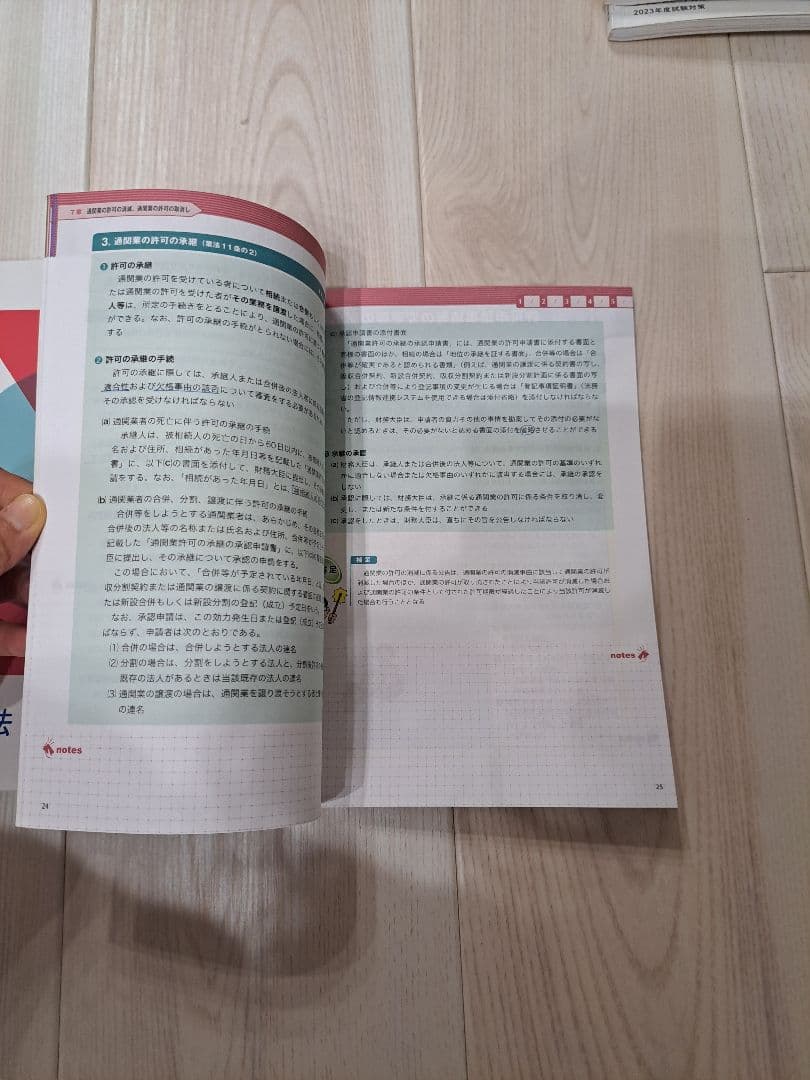 2023年度試験対策
7章 通関業の許可の消滅、通関業の許可の取消し
3. 通関業の許可の承継（業法11条の2）
❶ 許可の承継
通関業の許可を受けている者について相続または合併もし
たは通関業の許可を受けた者がその業務を譲渡した場合
人等は、所定の手続きをとることにより、通関業の許可に基づ
ができる。なお、許可の承継の手続がとられない場合には、
する
❷ 許可の承継の手続
許可の承継に際しては、承継人または合併後の法人等に
適合性および欠格事由の該否について審査をする必要がある
その承認を受けなければならない
(a) 通関業者の死亡に伴う許可の承継の手続
承継人は、被相続人の死亡の日から60日以内に、
名および住所、相続があった年月日等を記載した「
書」に、以下(c)の書面を添付して、財務大臣に提出し、その
請をする。なお、「相続があった年月日」とは、
(b) 通関業者の合併、分割、譲渡に伴う許可の承継の手続
合併等をしようとする通関業者は、あらかじめ、その
合併後の法人等の名称または氏名および住所、合併等が
記載した「通関業許可の承継の承認申請書」に、以下
臣に提出し、その承継について承認の申請をする。
この場合において、「合併等が予定されている年月日」
収分割契約または通関業の譲渡に係る契約に関する書面
たは新設合併もしくは新設分割の登記（成立）予定日
なお、承認申請は、この効力発生日または登記（成立）予定
ばならず、申請者は次のとおりである。
(1) 合併の場合は、合併しようとする法人の連名
(2) 分割の場合は、分割をしようとする法人と、分割後
既存の法人があるときは当該既存の法人の連名
(3) 通関業の譲渡の場合は、通関業を譲り渡そうとする
の連名
notes
24
1 2 3 4 5
(c) 承認申請書の添付書面
「通関業許可の承継の承認申請書」には、通関業の許可申請書に添付する書面と
同様の書面のほか、相続の場合は「地位の承継を証する書面」、合併等の場合は「合
併等が確実であると認められる書類」（例えば、通関業の譲渡に係る契約書の写し、
吸収合併契約、新設合併契約、吸収分割契約または新設分割計画に係る書面の写
し）および合併等により登記事項の変更が生じる場合は「登記事項証明書」（法務
省の登記情報連携システムを使用できる場合は添付省略）を添付しなければならな
い。
ただし、財務大臣は、申請者の資力その他の事情を勘案してその添付の必要がな
いと認めるときは、その必要がないと認める書面の添付を省略させることができる
承継の承認
(a) 財務大臣は、承継人または合併後の法人等について、通関業の許可の基準のいずれ
かに適合しない場合または欠格事由のいずれかに該当する場合には、承継の承認を
しない
(b) 承認に際しては、財務大臣は、承継に係る通関業の許可に係る条件を取り消し、変
更し、または新たな条件を付することができる
(c) 承認をしたときは、財務大臣は、直ちにその旨を公告しなければならない
補足
通関業の許可の消滅に係る公告は、通関業の許可の消滅事由に該当して通関業の許可が
消滅した場合のほか、通関業の許可が取り消されたことにより当該許可が消滅した場合お
よび通関業の許可の条件として付された許可期限が経過したことにより当該許可が消滅し
た場合も行うこととなる
notes
25
法